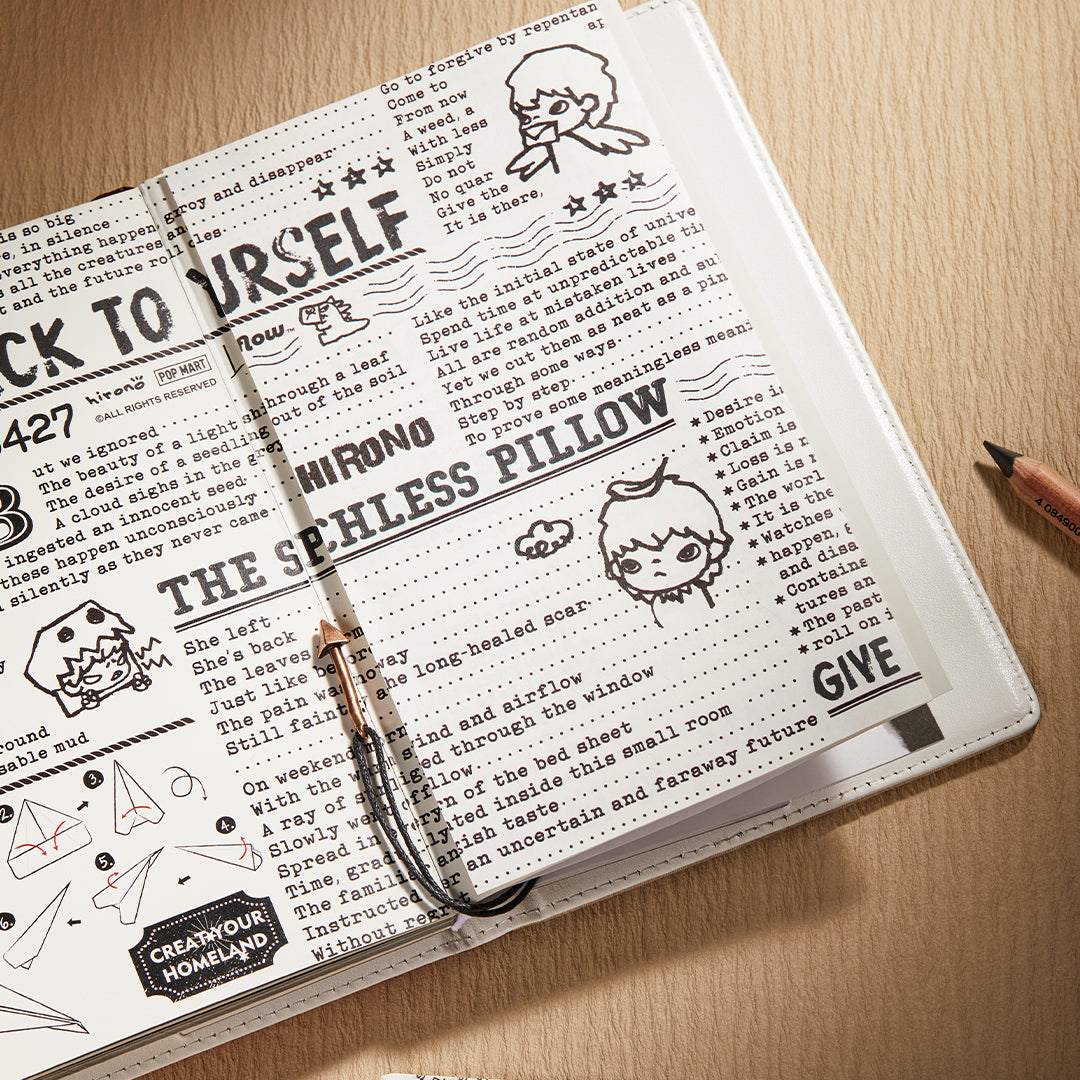 is so big
e, in silence
everything happen
all the creatures an
t and the future roll
CK TO
hirono
POP MART
©ALL RIGHTS RESERVED
427
ut we ignored
The beauty of a light
The desire of a seedling
A cloud sighs in the grey
ingested an innocent seed
these happen unconsciously
silently as they never came.
B
THE SP
She left
She's back
The leaves
Just like before
The pain was now
Still faint
round
sable mud
On weekend morn
With the
A ray of
Slowly
Spread in
Time,
The famili
Instructed
Without regret
2.
3.
4.
5.
6.
CREATE YOUR
HOMELAND
groy and disappear
cles.
URSELF
now™
through a leaf
out of the soil
HIRONO
CHLESS PILLOW
way
are long-healed scar
ind and airflow
ged through the window
llow
n of the bed sheet
ted inside this small room
ish taste
an uncertain and faraway future
Go to forgive by repentan
Come to
From now
A weed, a
With less
Simply
Do not
No quar
Give the
It is there,
Like the initial state of unive
Spend time at unpredictable ti
Live life at mistaken lives
All are random addition and su
Yet we cut them as neat as a pin
Through some ways.
Step by step.
To prove some meaningless meani
*Desire i
*Emotion
*Claim is
*Loss is
*Gain is
*The worl
*It is the
*Watches
happen,
and disa
*Contains
tures an
*The past
*roll on i
GIVE
4 084900